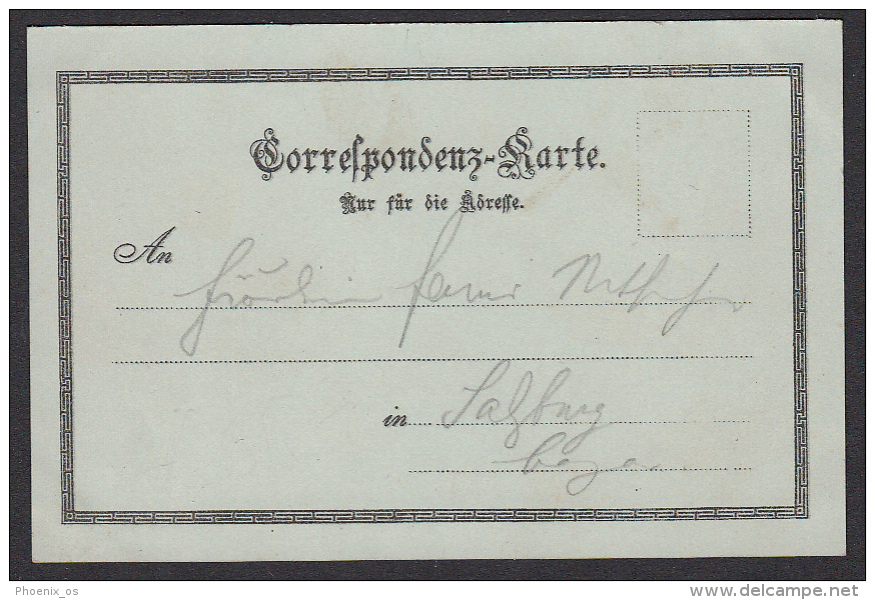 Correspondenz-Karte.
Nur für die Adresse.
An Fräulein
in Salzburg
Phoenix_os
delcampe.net